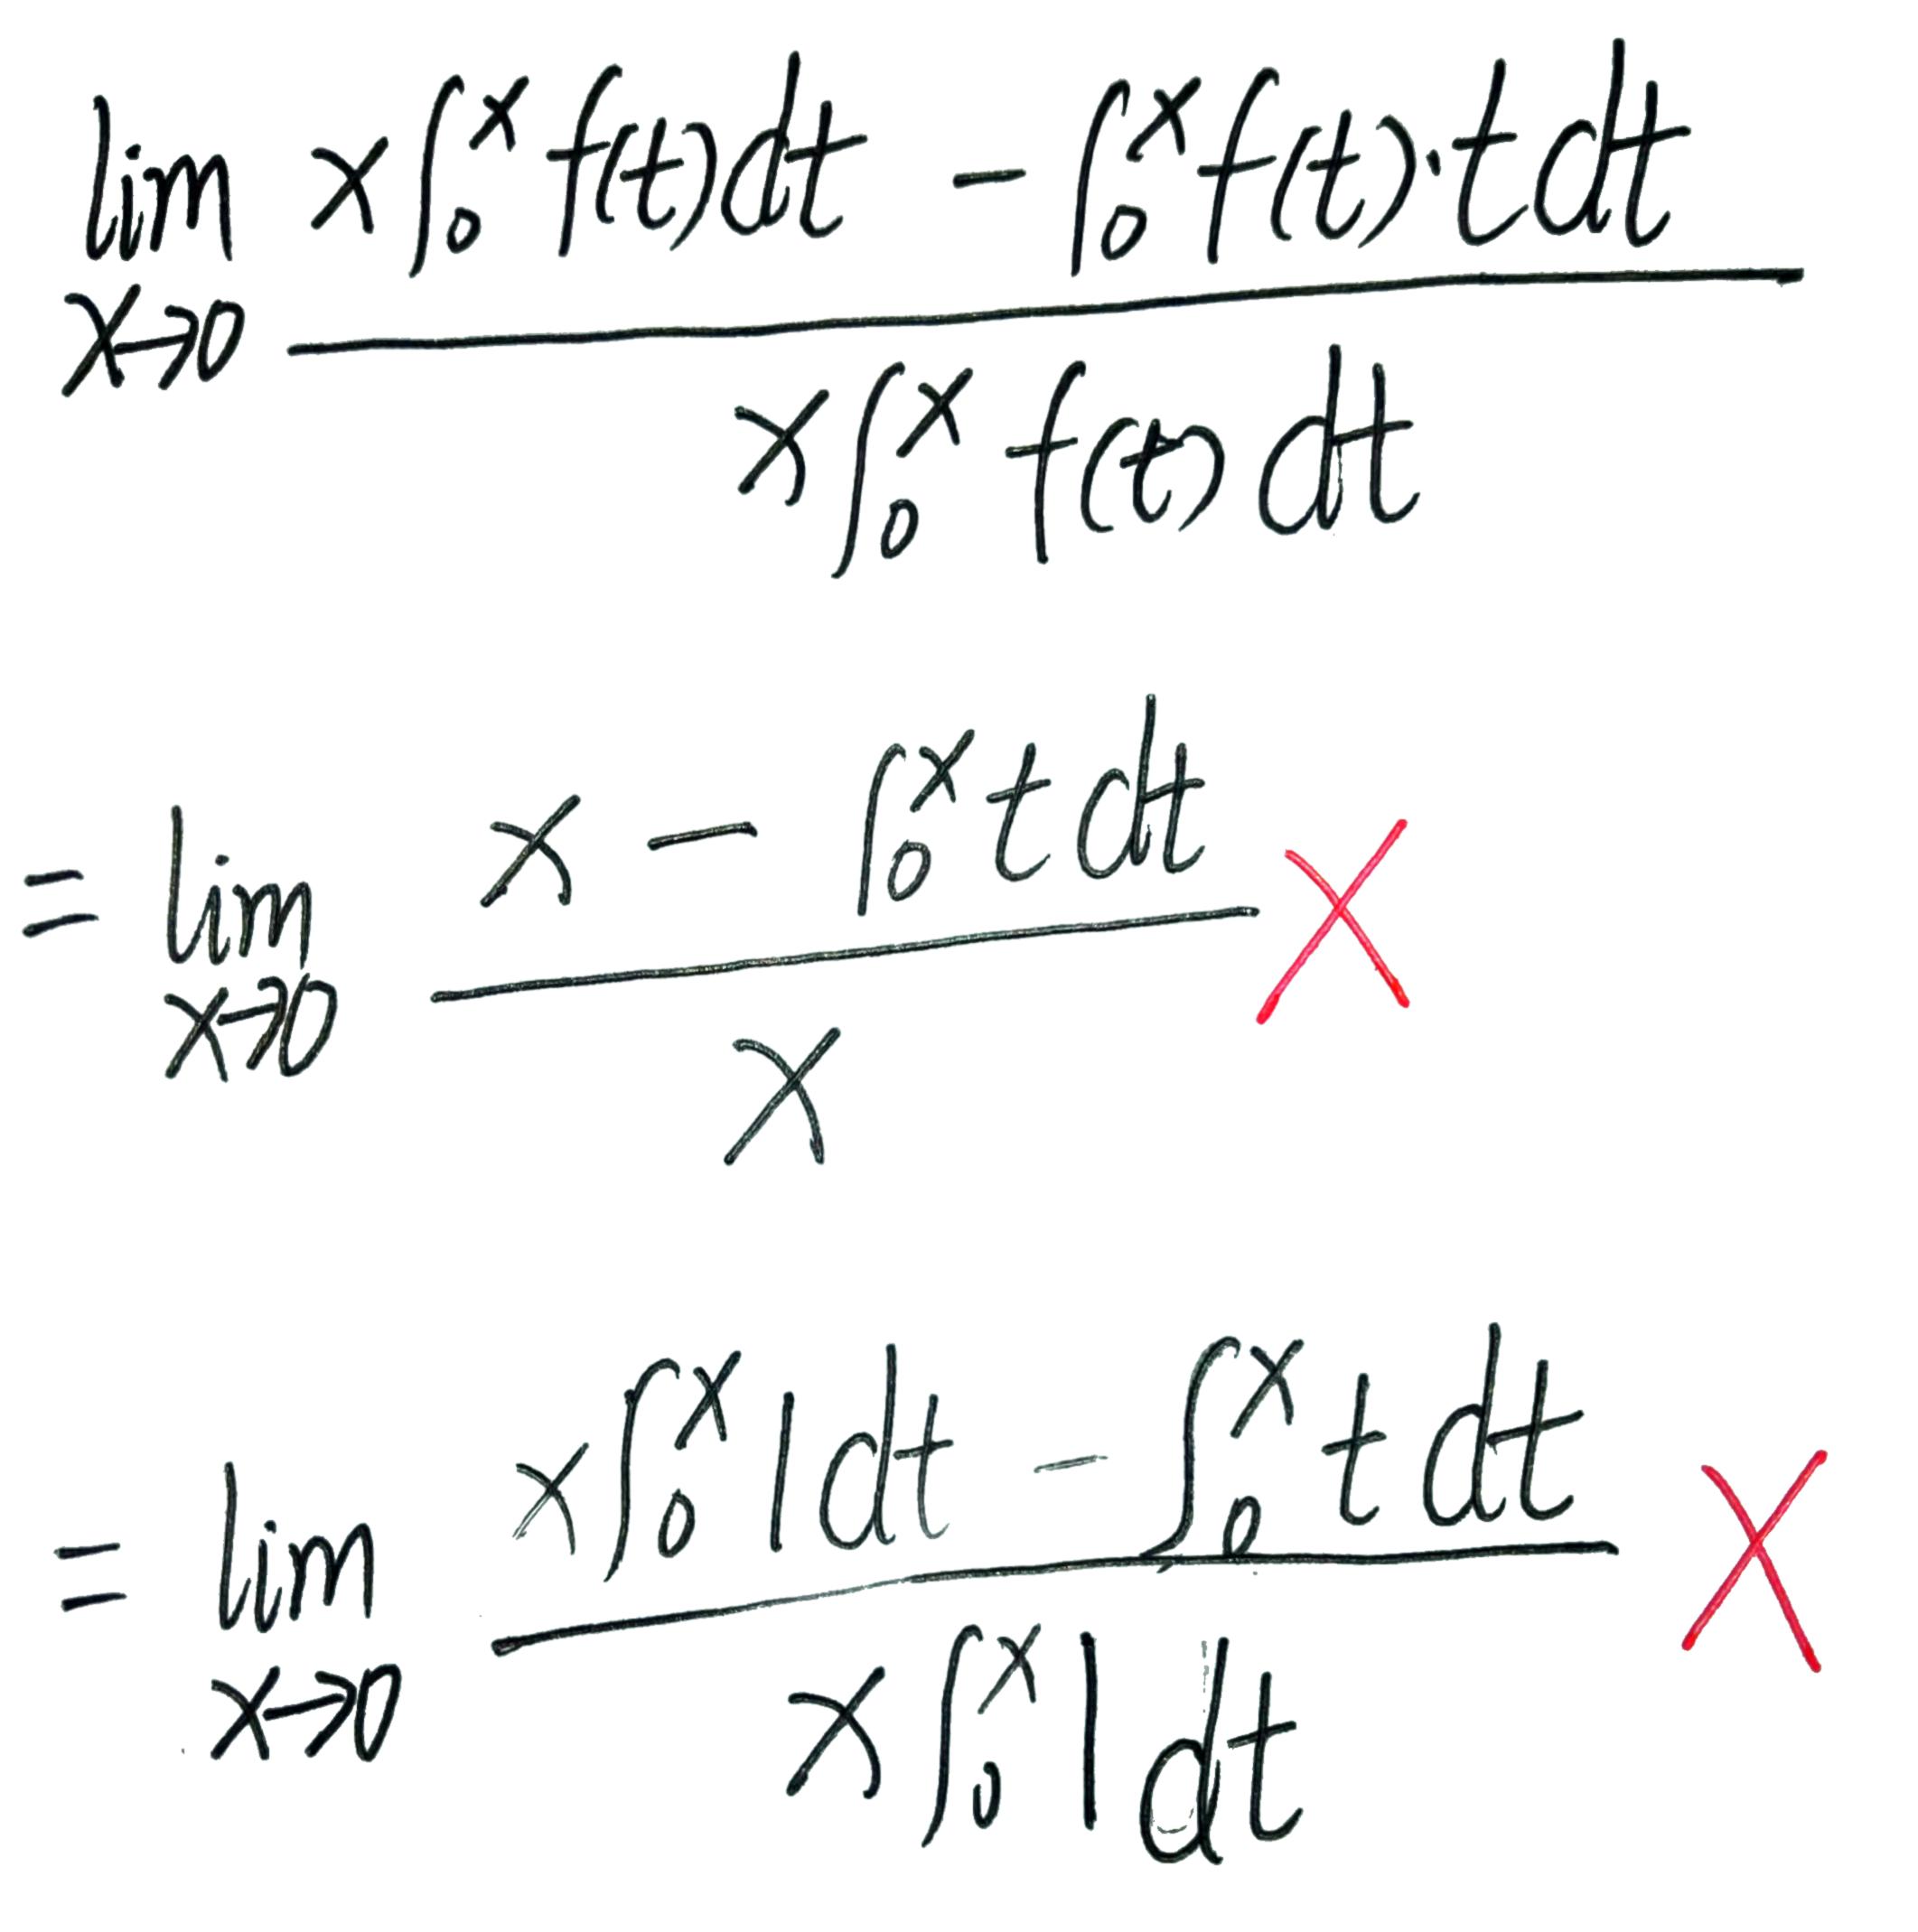 lim x→0 (x∫₀ˣ f(t)dt − ∫₀ˣ f(t)·t dt) / (x∫₀ˣ f(t) dt)
= lim x→0 (x − ∫₀ˣ t dt) / x ×
= lim x→0 (x∫₀ˣ 1 dt − ∫₀ˣ t dt) / (x∫₀ˣ 1 dt) ×